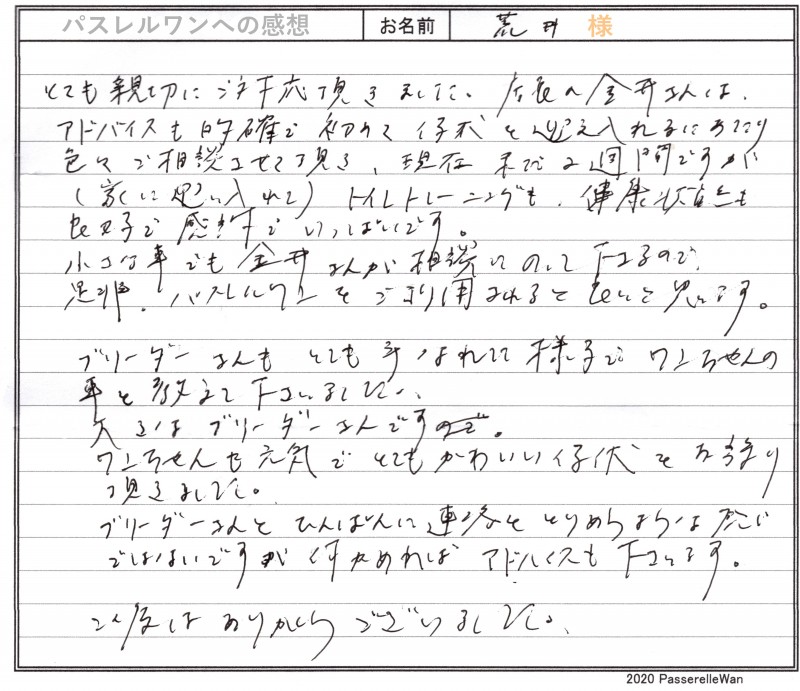 パスレルワンへの感想 お名前 荒井 様
とても親切にご対応頂きました。店長の金井さんは、
アドバイスも的確で初めて仔犬を迎え入れるにあたり
色々ご相談させて頂き、現在まだ2週間ですが
(家に迎い入れて) トイレトレーニングも、健康状態も
良好で感謝でいっぱいです。
小さな事でも金井さんが相談にのって下さるので、
是非、パスレルワンをご利用されると良いと思います。
ブリーダーさんもとても手なれてて様子でワンちゃんの
事を教えて下さいました。
ブリーダーさんです。
ワンちゃんも元気でとてもかわいい仔犬をお譲り
頂きました。
ブリーダーさんとひんぱんに連絡をとりあうような感じ
ではないですが何かあればアドバイスも下さいます。
この度はありがとうございました。
2020 PasserelleWan